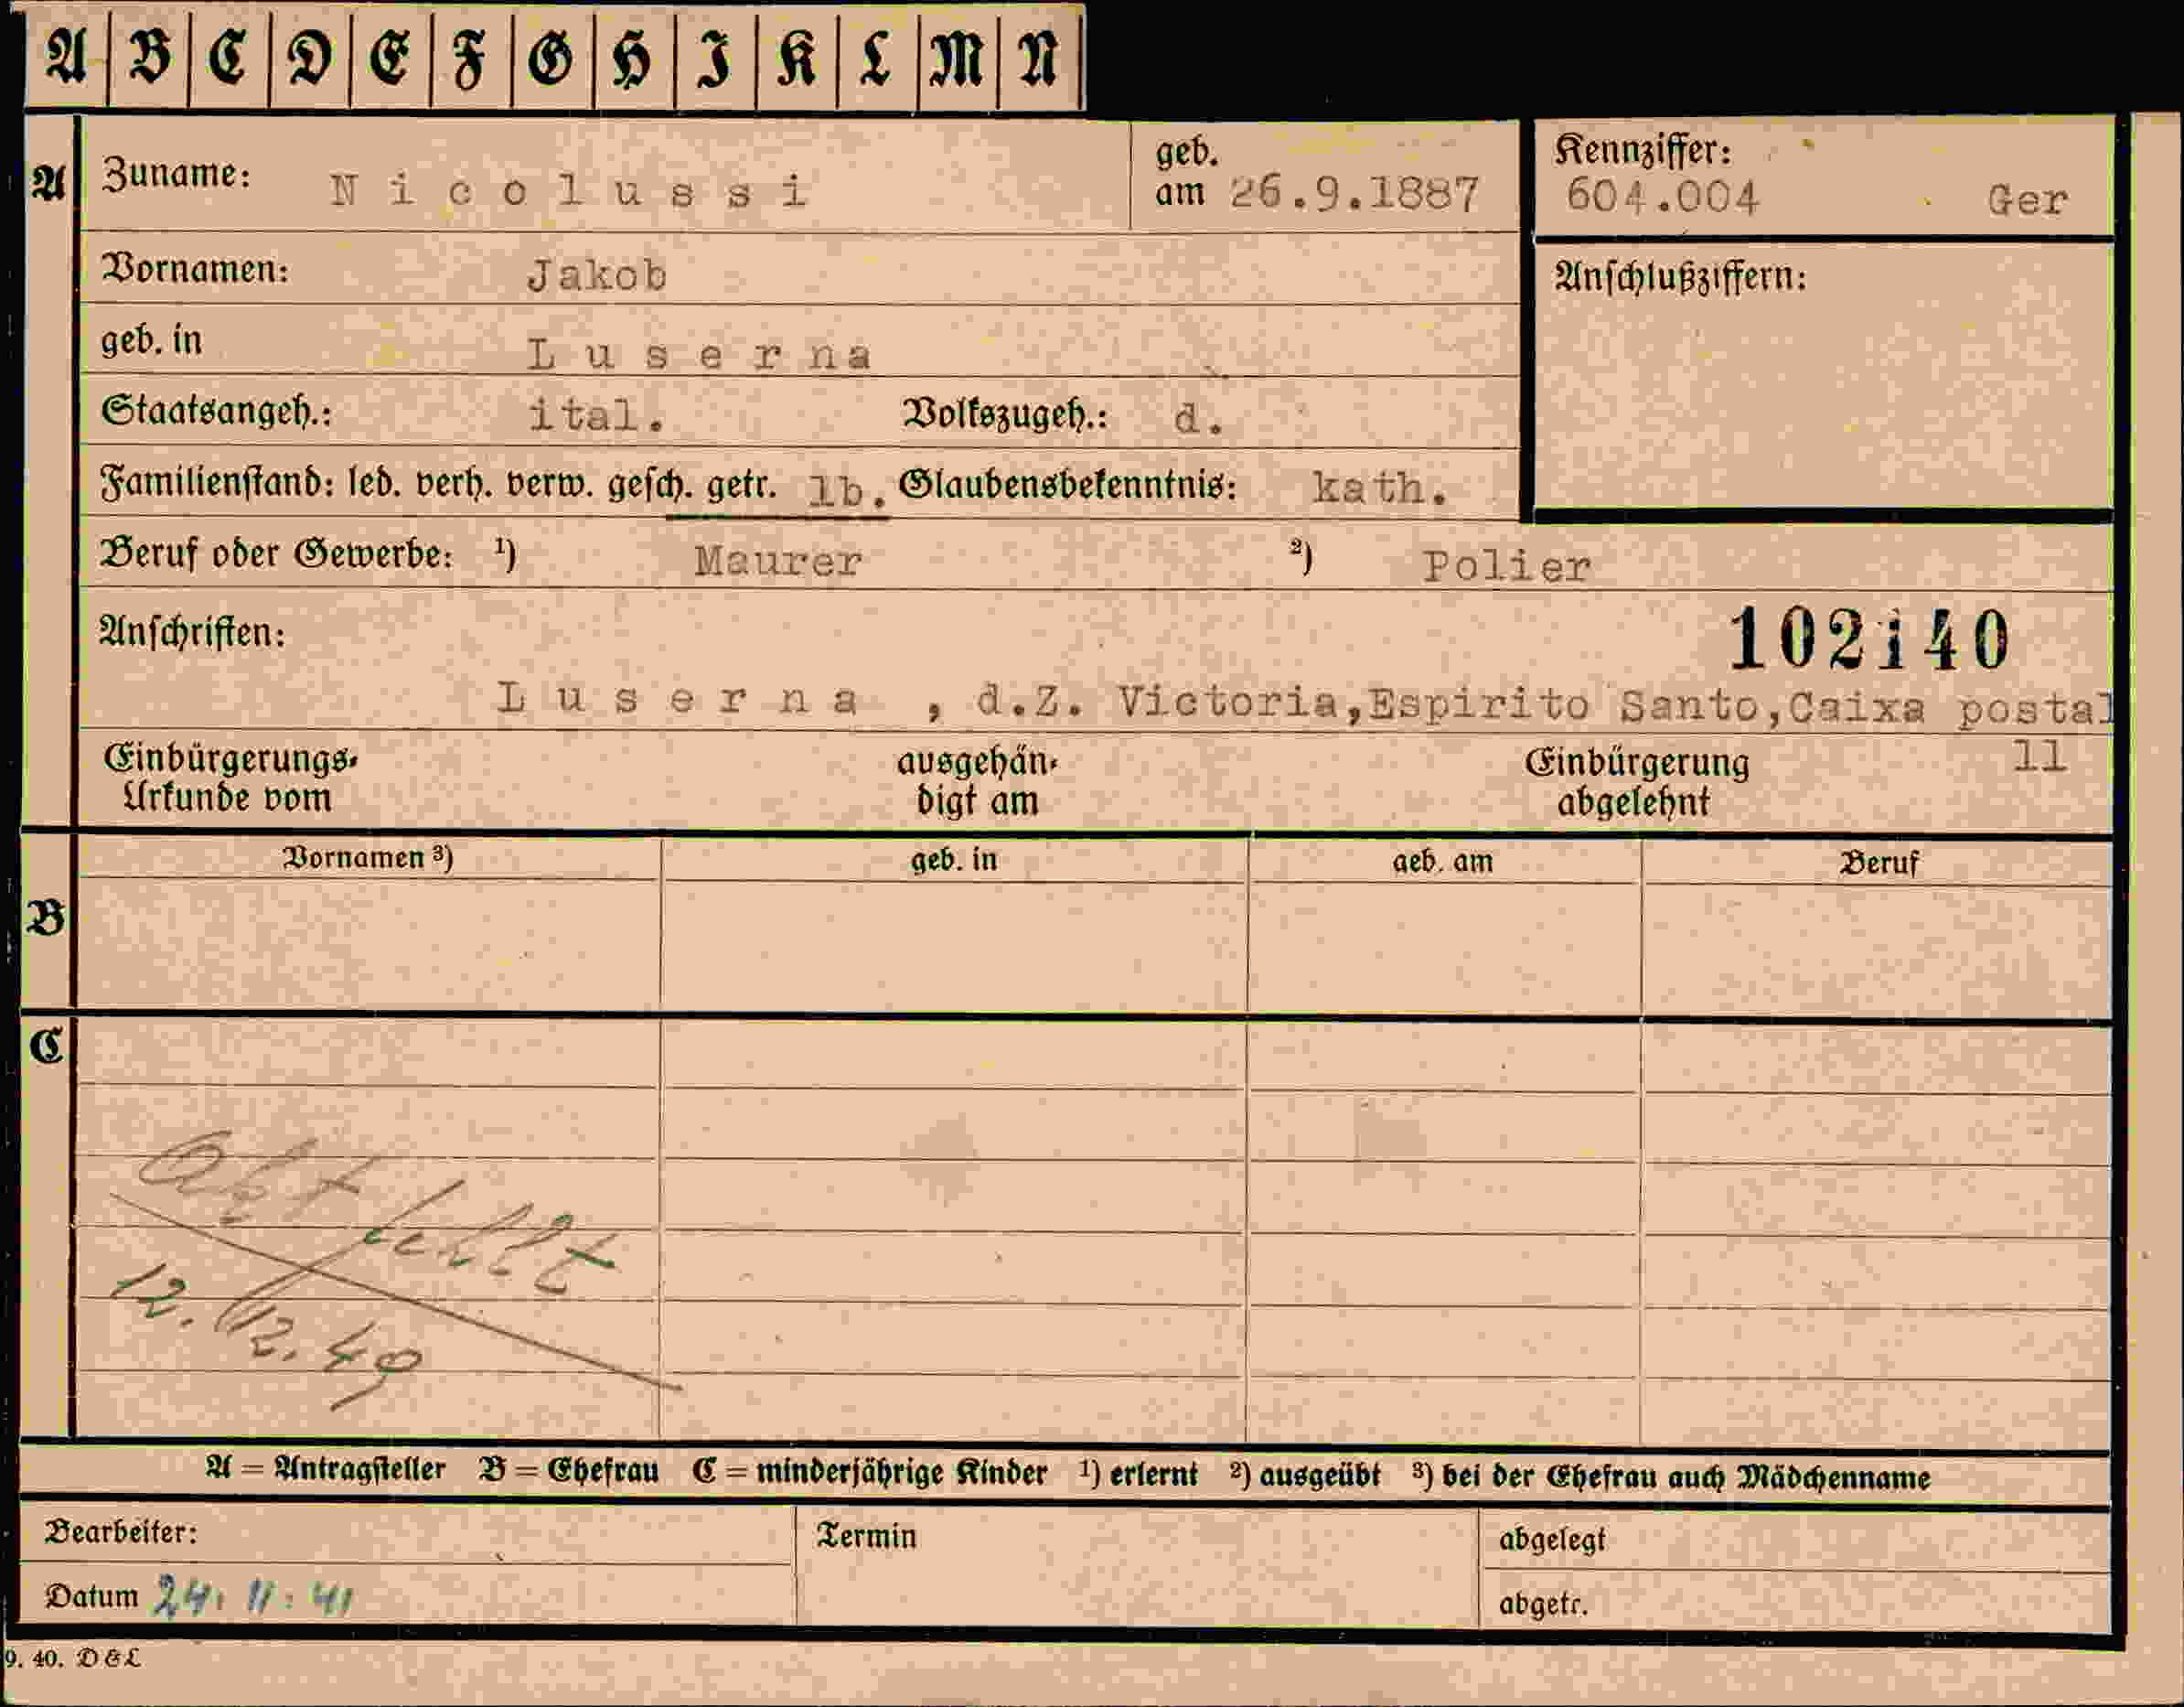 A B C D E F G H I K L M N
A Zuname: Nicolussi geb. am 26.9.1887 Kennziffer: 604.004 Ger
Vornamen: Jakob
Anschlußziffern:
geb. in Luserna
Staatsangeh.: ital. Volkszugeh.: d.
Familienstand: led. verh. verw. gesch. getr. lb. Glaubensbekenntnis: kath.
Beruf oder Gewerbe: 1) Maurer 2) Polier
Anschriften: 102140
Luserna , d.Z. Victoria,Espirito Santo,Caixa postal
11
Einbürgerungs-
Urkunde vom
ausgehän-
digt am
Einbürgerung
abgelehnt
Vornamen 3) geb. in geb. am Beruf
B
C
Akt fehlt
12. 12. 49
A = Antragsteller B = Ehefrau C = minderjährige Kinder 1) erlernt 2) ausgeübt 3) bei der Ehefrau auch Mädchenname
Bearbeiter: Termin abgelegt
Datum 24. 11. 41 abgetr.
9. 40. D&L